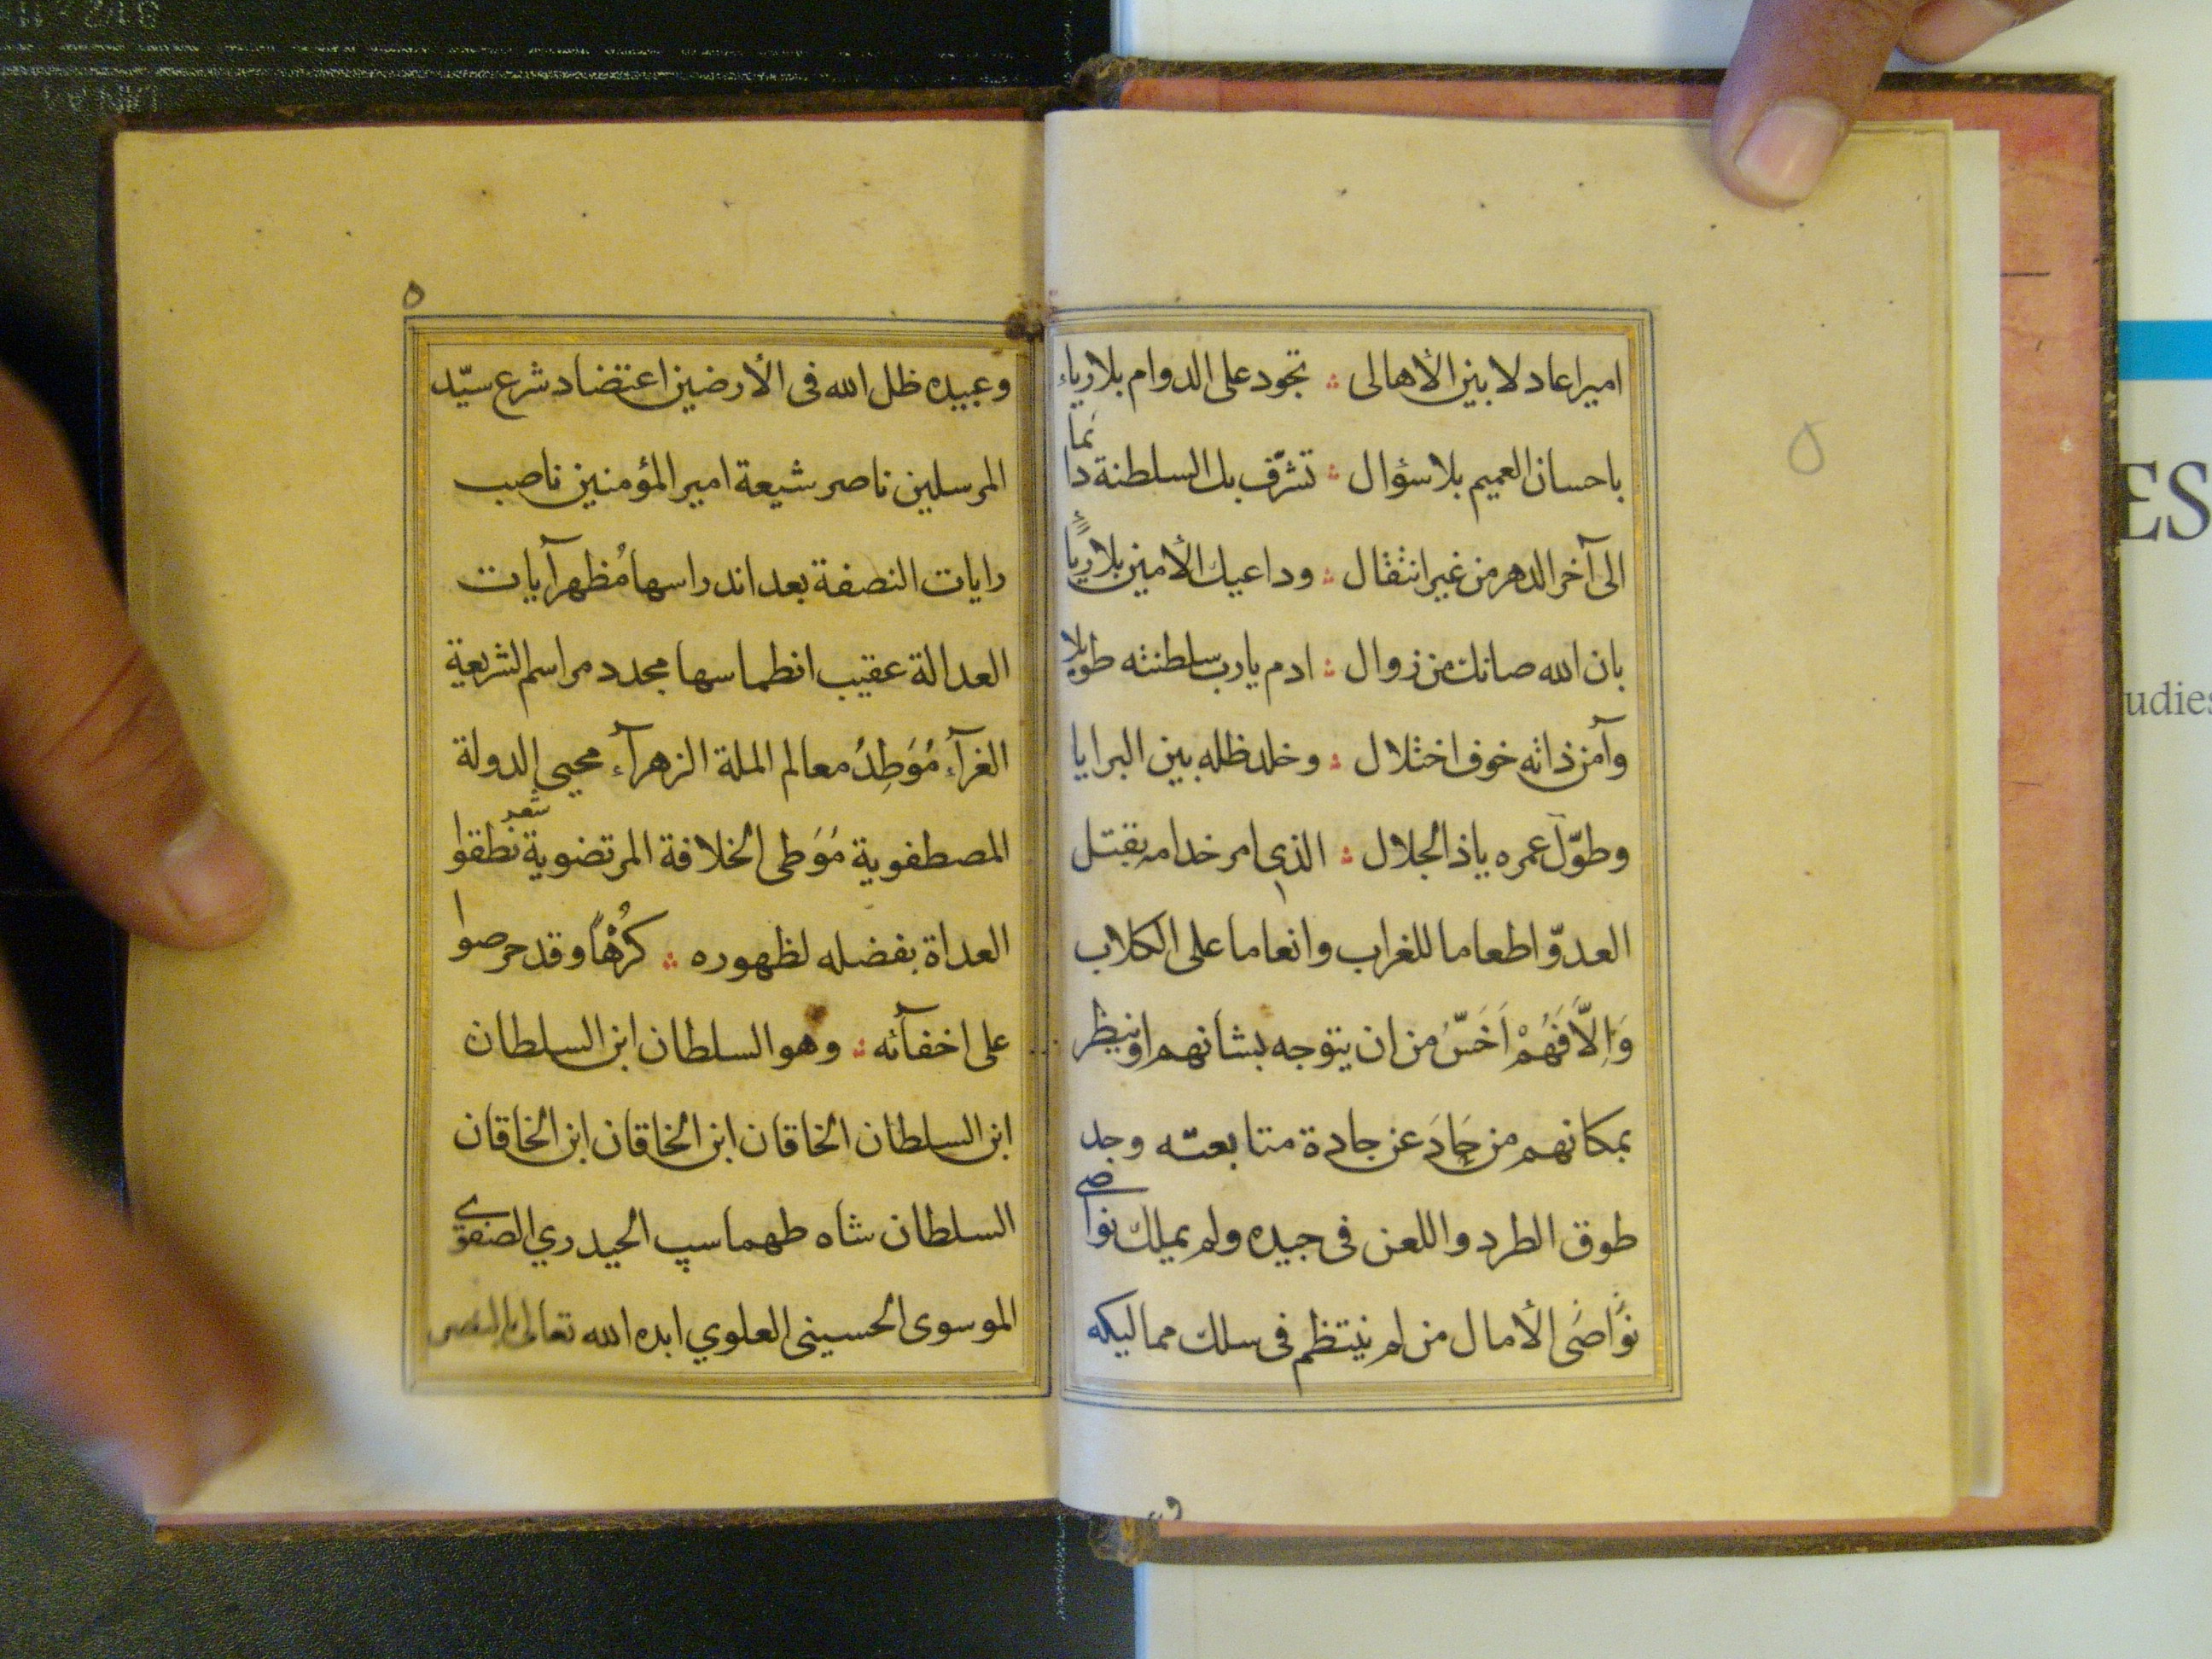 اميرا عادلا بين الأهالى ؞ تجود على الدوام بلا رياء
باحسان العميم بلا سؤال ؞ تشرّف بك السلطنة دائما
الى آخر الدهر من غير انتقال ؞ وداعيك الأمين بلا رياً
بان الله صانك من زوال ؞ ادم يا رب سلطنته طويلا
وآمن ذاته خوف اختلال ؞ وخلد ظله بين البرايا
وطوّل عمره ياذا الجلال ؞ الذى امر خدامه بقتل
العدوّ اطعاما للغراب وانعاما على الكلاب
وَاِلَّا فَهُمْ اَخَسّ من ان يتوجه بشانهم او ينظر
بمكانهم من حَادَ عن جادة متابعته وجد
طوق الطرد واللعن فى جيده ولم يملك نواصى
نوَاضى الأمال من لم ينتظم فى سلك مماليكه
٥
٥
وعبيده ظل الله فى الأرضين اعتضاد شرع سيّد
المرسلين ناصر شيعة امير المؤمنين ناصب
رايات النصفة بعد اندراسها مُظهر آيات
العدالة عقيب انطماسها مجدد مراسم الشريعة
الغرآء مُوَطِدُ معالم الملة الزهرآء محيى الدولة
المصطفوية مُوَطى الخلافة المرتضوية شعر نطقوا
العداة بفضله لظهوره ؞ كُرْهًا وقد حرصوا
على اخفآئه ؞ وهو السلطان ابن السلطان
ابن السلطان الخاقان ابن الخاقان ابن الخاقان
السلطان شاه طهماسپ الحيدري الصفوى
الموسوى الحسينى العلوي ايده الله تعالى
ES
udies